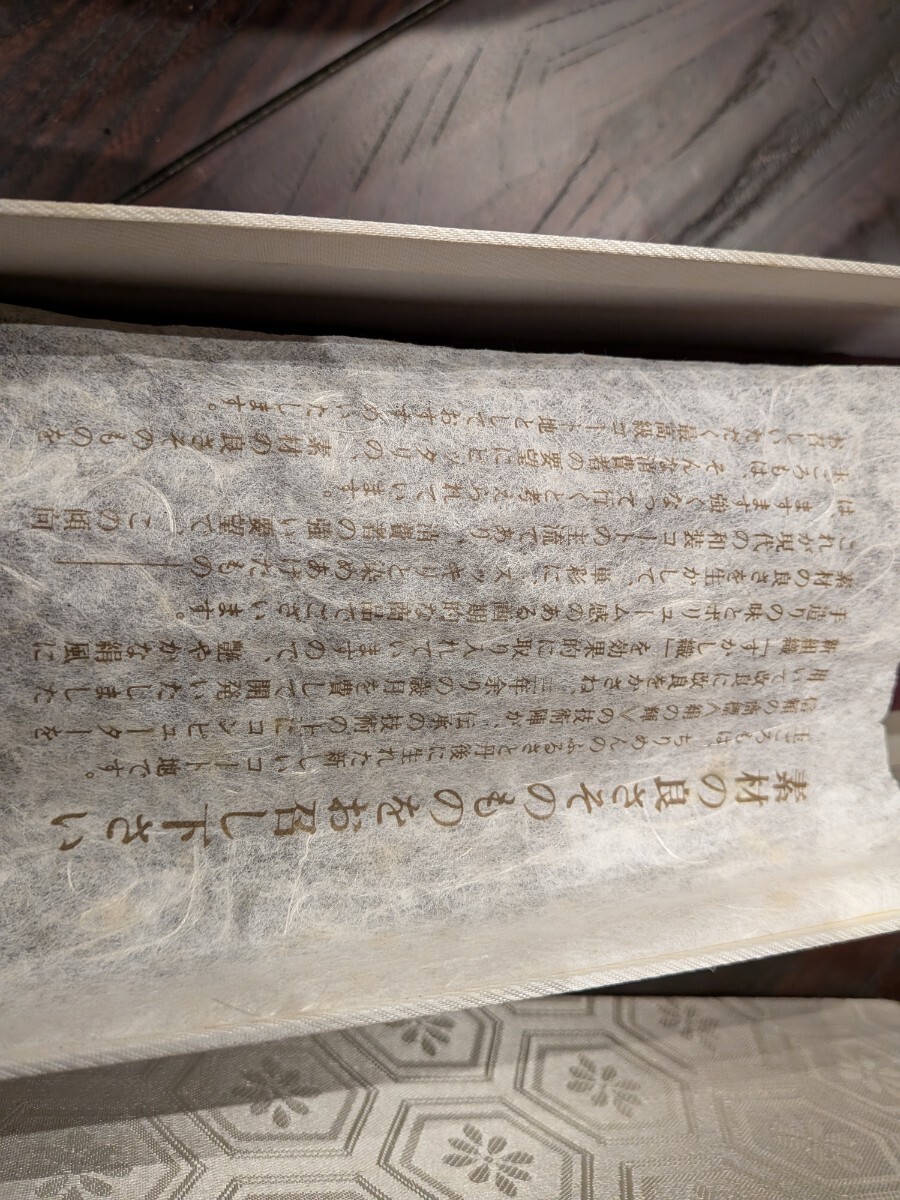 素材の良さそのものをお召し下さい
玉ごろもは、ちりめんのふるさと丹後に生れた新しいコート地です。
の技術陣が、伝来の技術の上にコンピューターを
用いて改良に改良をかさね、三年余りの歳月を費して開発いたしました
新組織「すかし織」を効果的に取り入れていますので、艶やかな絹風に
手造りの味とボリューム感のある画期的な商品でございます。
素材の良さを生かして、単彩に、スッキリと染めあげたもの―――
これが現代の和装コートの主流であり、消費者の強い要望で、この傾向
はますます強くなって行くと考えられています。
玉ごろもは、そんな消費者の要望にピッタリの、素材の良さそのものを
お召しいただく最高級コート地としておすすめいたします。